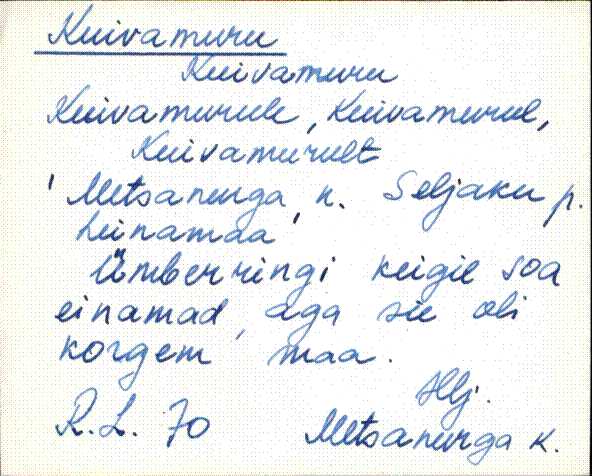 Kuivamuru
Kuivamuru
Kuivamurule, Kuivamurul,
Kuivamurult
'Metsanurga, n. Seljaku p.
heinamaa'
Ümberringi keigil soa
einamad, aga sie oli
korgem maa.
Hlj.
R.L. 70 Metsanurga k.